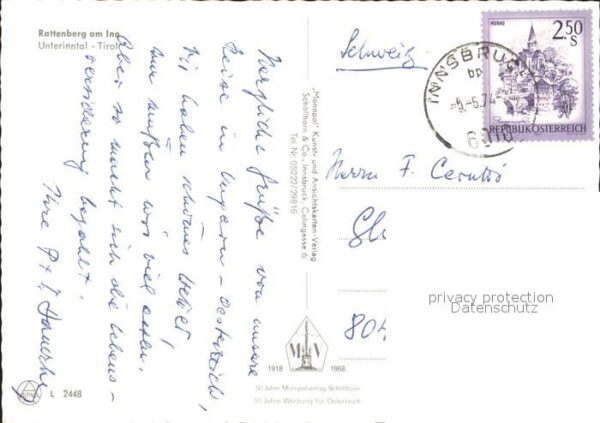 Rattenberg am Inn
Unterinntal - Tirol
Herzliche Grüße von unsere
Reise in Ungarn - Oesterreich,
Wir haben schönes Wetter!
nur müßen wir viel essen.
Aber so macht sich die Lebens-
versicherung bezahlt.
Ihre
L 2448
"Monopol" Kunst- und Ansichtskarten-Verlag
Schöllhorn & Co., Innsbruck, Colingasse 6
Tel. Nr. 05222/29816
MV
1918 1968
50 Jahre Monopolverlag Schöllhorn
50 Jahre Werbung für Österreich
Schweiz
INNSBRUCK
6010
MURAU
2.50
S
REPUBLIK ÖSTERREICH
Herrn F.
804
privacy protection
Datenschutz